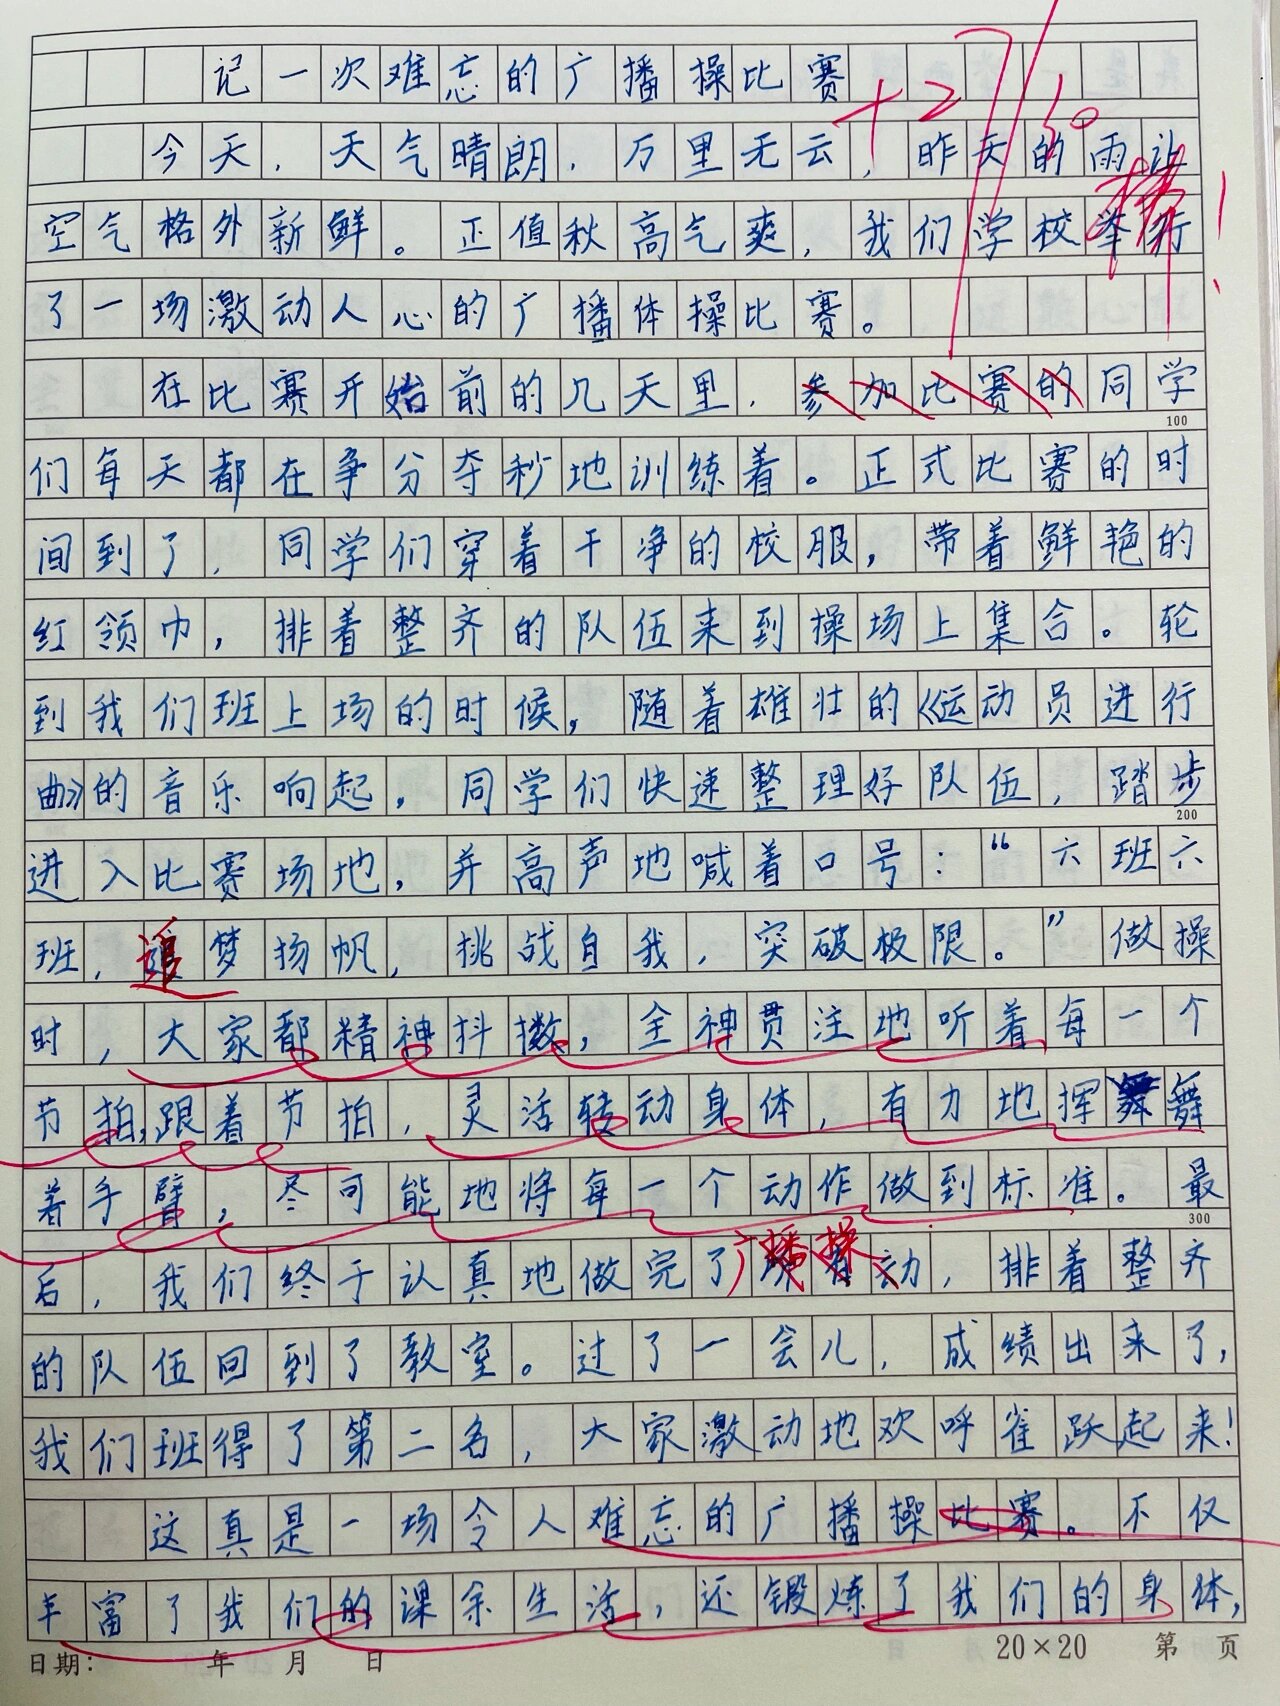 记一次难忘的广播操比赛
+2
30
棒!
今天,天气晴朗,万里无云,昨天的雨让
空气格外新鲜。正值秋高气爽,我们学校举行
了一场激动人心的广播体操比赛。
在比赛开始前的几天里,参加比赛的同学
100
们每天都在争分夺秒地训练着。正式比赛的时
间到了,同学们穿着干净的校服,带着鲜艳的
红领巾,排着整齐的队伍来到操场上集合。轮
到我们班上场的时候,随着雄壮的《运动员进行
曲》的音乐响起,同学们快速整理好队伍,踏步
200
进入比赛场地,并高声地喊着口号:“六班六
班,追梦扬帆,挑战自我,突破极限。”做操
时,大家都精神抖擞,全神贯注地听着每一个
节拍,跟着节拍,灵活转动身体,有力地挥舞
着手臂,尽可能地将每一个动作做到标准。最
300
广播操
后,我们终于认真地做完了动,排着整齐
的队伍回到了教室。过了一会儿,成绩出来了,
我们班得了第二名,大家激动地欢呼雀跃起来!
这真是一场令人难忘的广播操比赛。不仅
丰富了我们的课余生活,还锻炼了我们的身体,
日期: 年 月 日 20×20 第 页